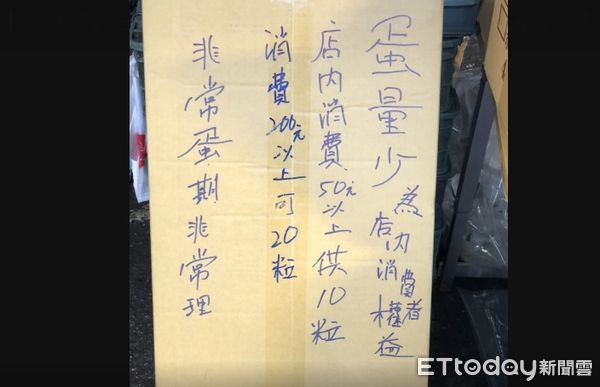 蛋量少為店內消費者權益
店內消費50元以上供10粒
消費200元以上可20粒
非常蛋期非常理
ETtoday新聞雲